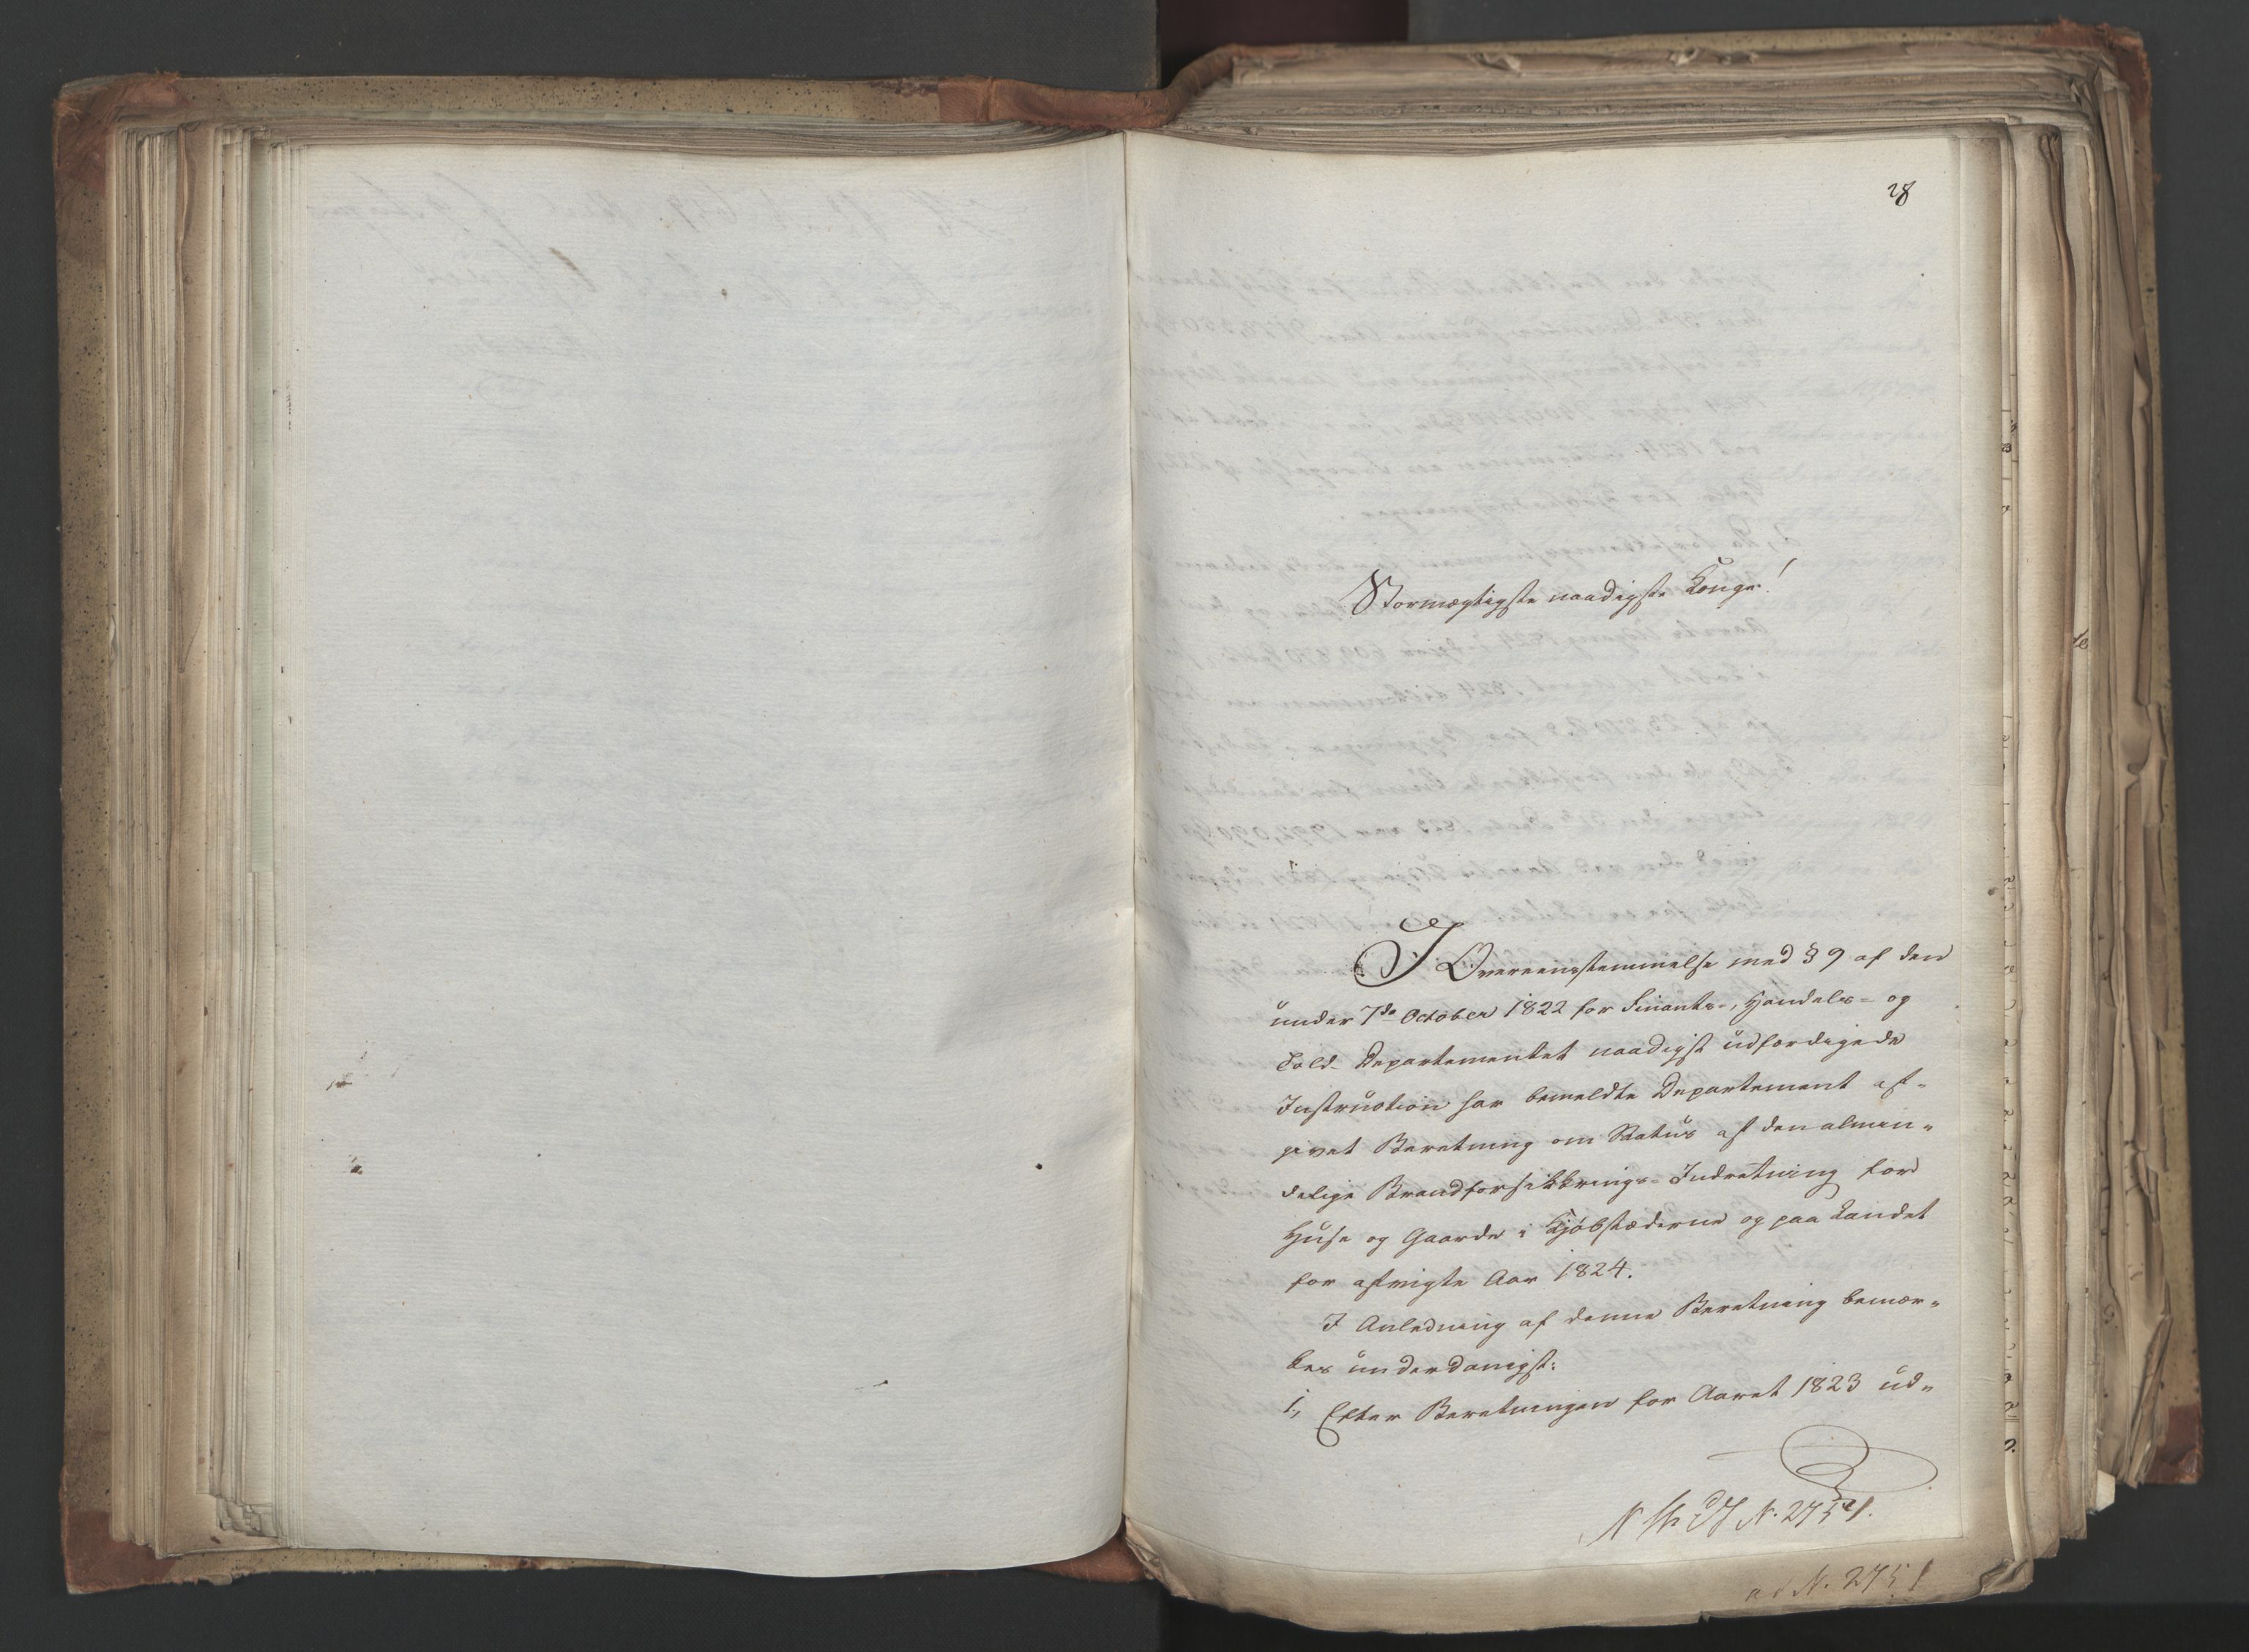 28
Stormægtigste naadigste Konge!
I Overeensstemmelse med § 9 af den
under 7de October 1822 for Finants-, Handels- og
Told-Departementet naadigst udfærdigede
Instruction har bemeldte Departement af-
givet Beretning om Status af den almin-
delige Brandforsikkrings-Indretning for
Huse og Gaarde i Kjøbstæderne og paa Landet
for afvigte Aar 1824.
I Anledning af denne Beretning bemær-
kes underdanigst:
1, Efter Beretningen for Aaret 1823 ud-
N. 2751.
ad N. 2751